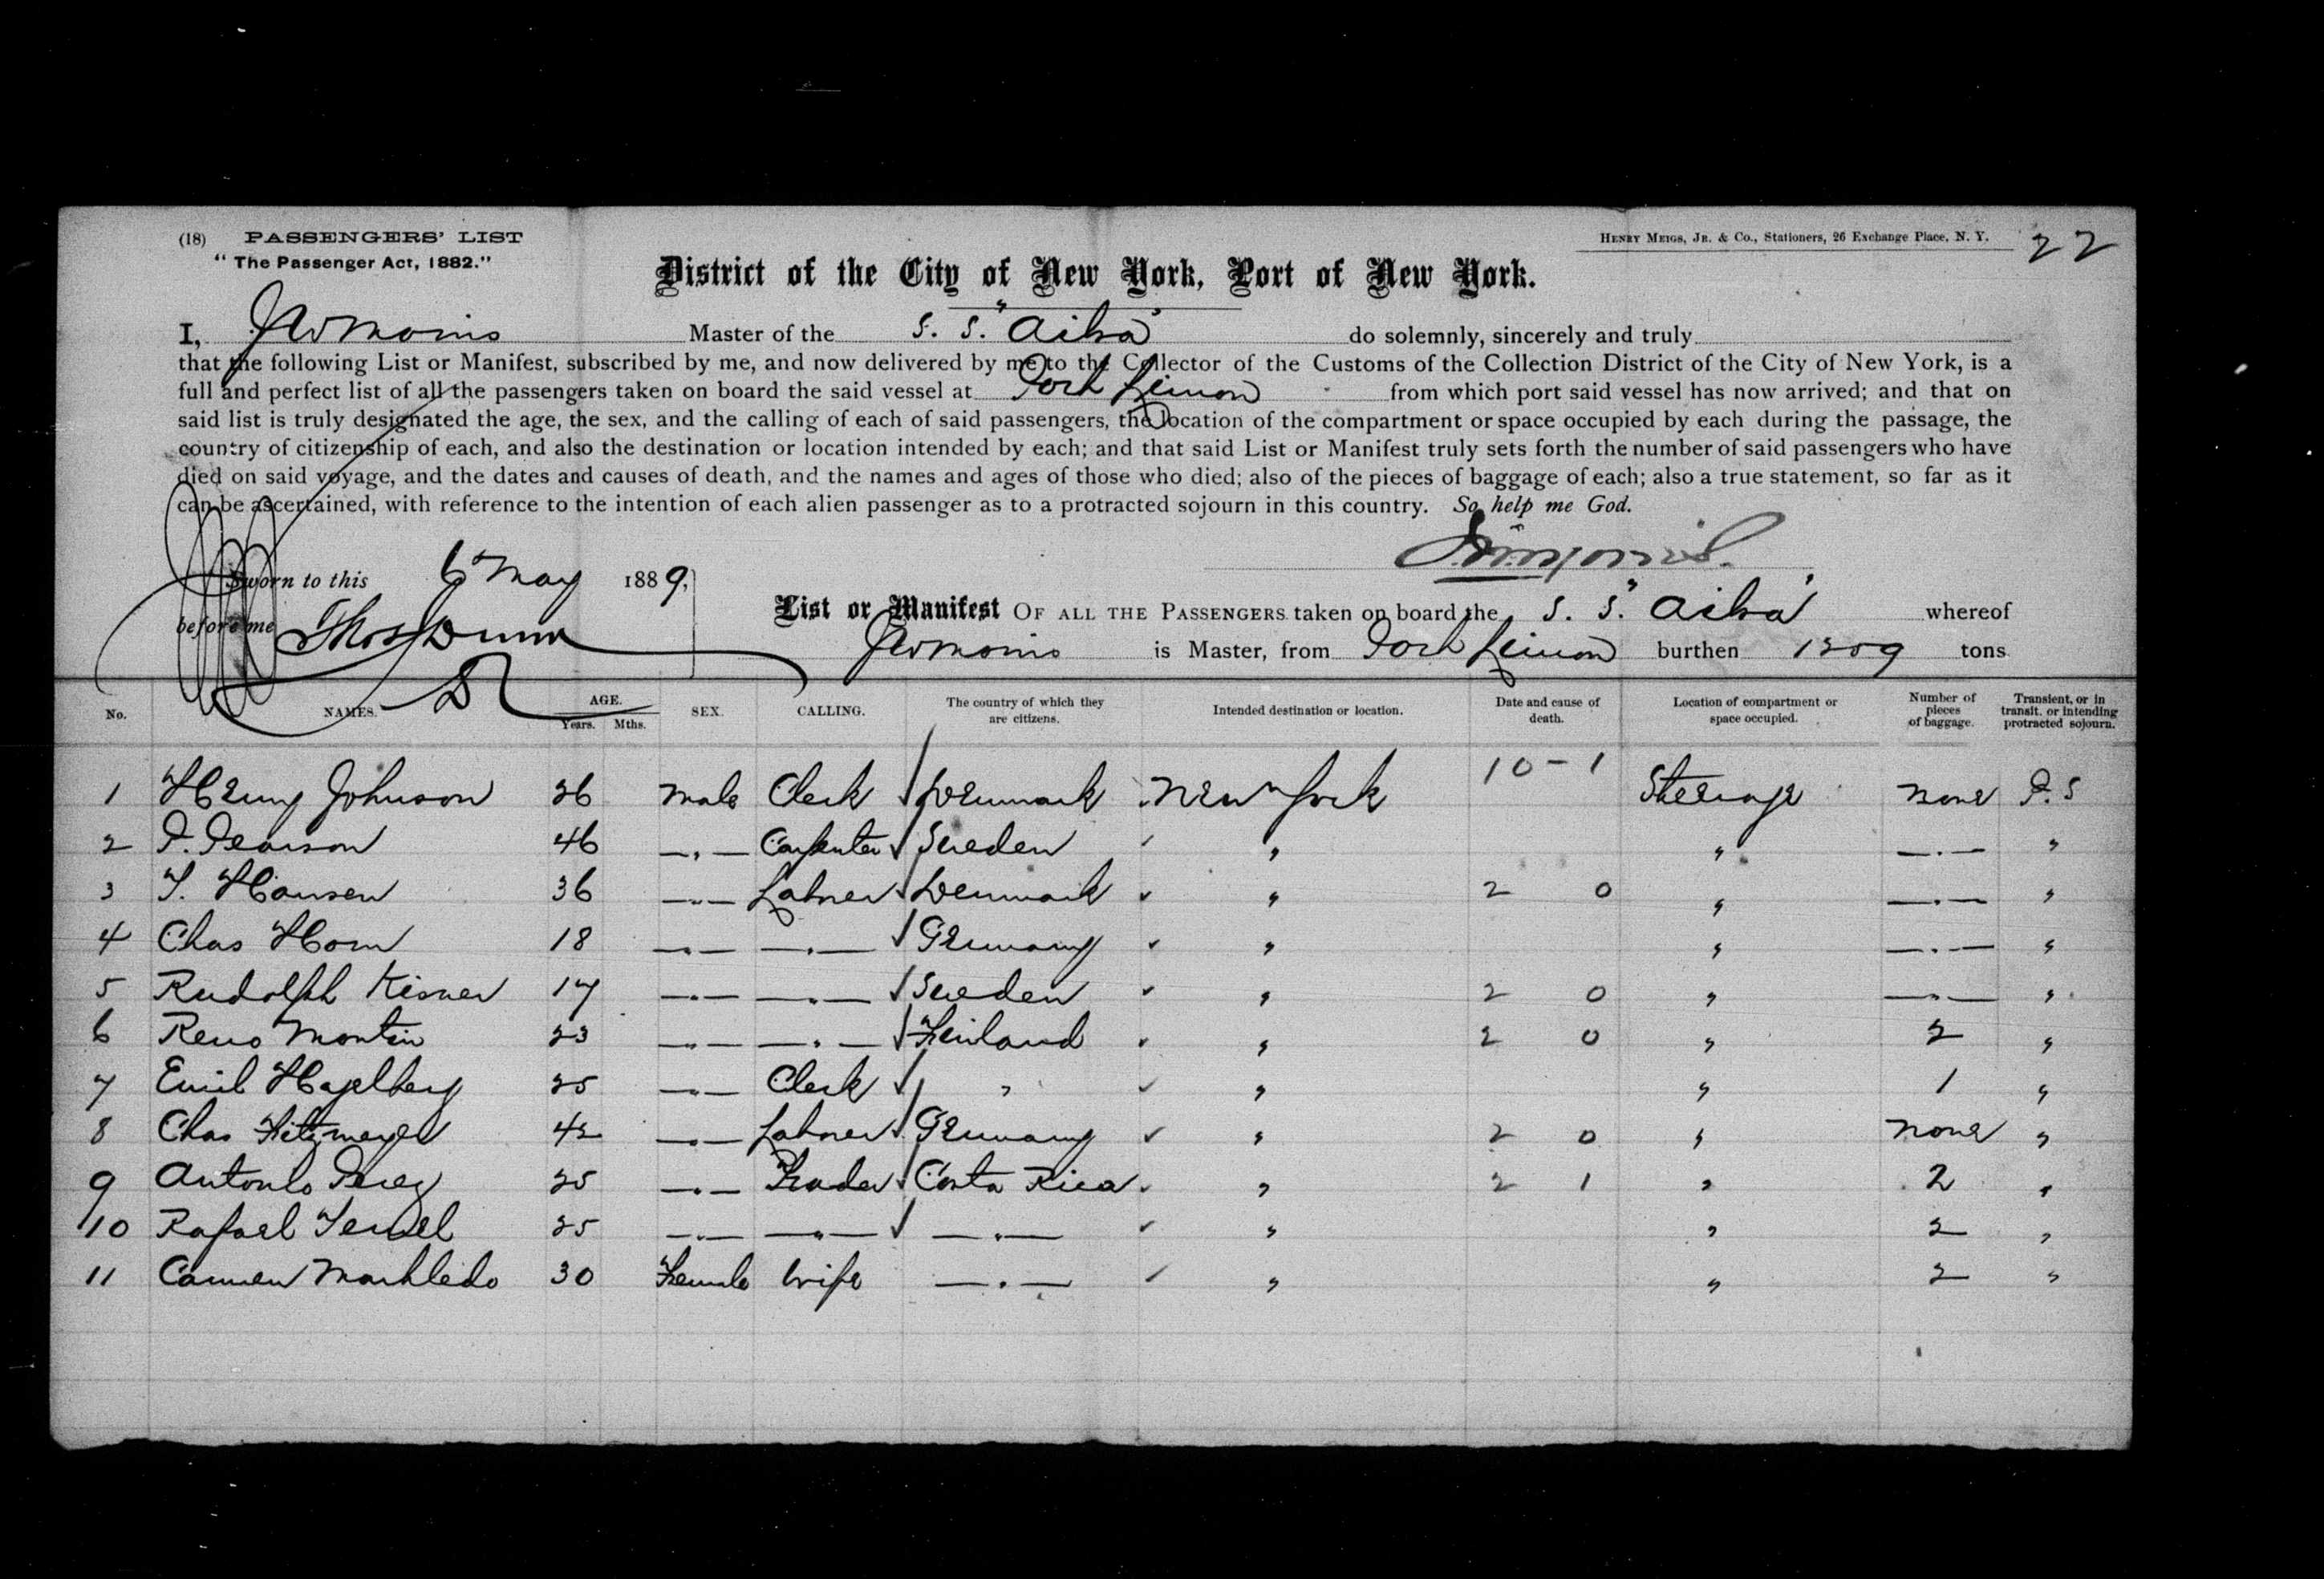 (18) PASSENGERS' LIST
HENRY MEIGS, JR. & CO., Stationers, 26 Exchange Place, N. Y. 22
"The Passenger Act, 1882."
District of the City of New York, Port of New York.
I, J W Morris Master of the S. S. "Ailsa" do solemnly, sincerely and truly
that the following List or Manifest, subscribed by me, and now delivered by me to the Collector of the Customs of the Collection District of the City of New York, is a
full and perfect list of all the passengers taken on board the said vessel at Port Limon from which port said vessel has now arrived; and that on
said list is truly designated the age, the sex, and the calling of each of said passengers, the location of the compartment or space occupied by each during the passage, the
country of citizenship of each, and also the destination or location intended by each; and that said List or Manifest truly sets forth the number of said passengers who have
died on said voyage, and the dates and causes of death, and the names and ages of those who died; also of the pieces of baggage of each; also a true statement, so far as it
can be ascertained, with reference to the intention of each alien passenger as to a protracted sojourn in this country. So help me God.
J. W. Morris.
Sworn to this 6th May 1889,
before me Thos Dunn
List or Manifest OF ALL THE PASSENGERS taken on board the S. S. "Ailsa" whereof
J W Morris is Master, from Port Limon burthen 1309 tons
No. NAMES. AGE. Years. Mths. SEX. CALLING. The country of which they are citizens. Intended destination or location. Date and cause of death. Location of compartment or space occupied. Number of pieces of baggage. Transient, or in transit, or intending protracted sojourn.
1 Henry Johnson 36 Male Clerk Denmark New York 10-1 Steerage none P. S
2 P. Pearson 46 —"— Carpenter Sweden " " —"— "
3 T. Hansen 36 —"— Laborer Denmark " 2 0 " —"— "
4 Chas Horn 18 —"— —"— Germany " " —"— "
5 Rudolph Kisner 17 —"— —"— Sweden " 2 0 " —"— "
6 Reno Montin 23 —"— —"— Finland " 2 0 " 2 "
7 Emil Hagelberg 25 —"— Clerk " " " 1 "
8 Chas Fitzmeyer 42 —"— Laborer Germany " 2 0 " none "
9 Antonio Perez 25 —"— Trader Costa Rica " 2 1 " 2 "
10 Rafael 25 —"— —"— —"— " " 2 "
11 Carmen 30 Female Wife —"— " " 2 "